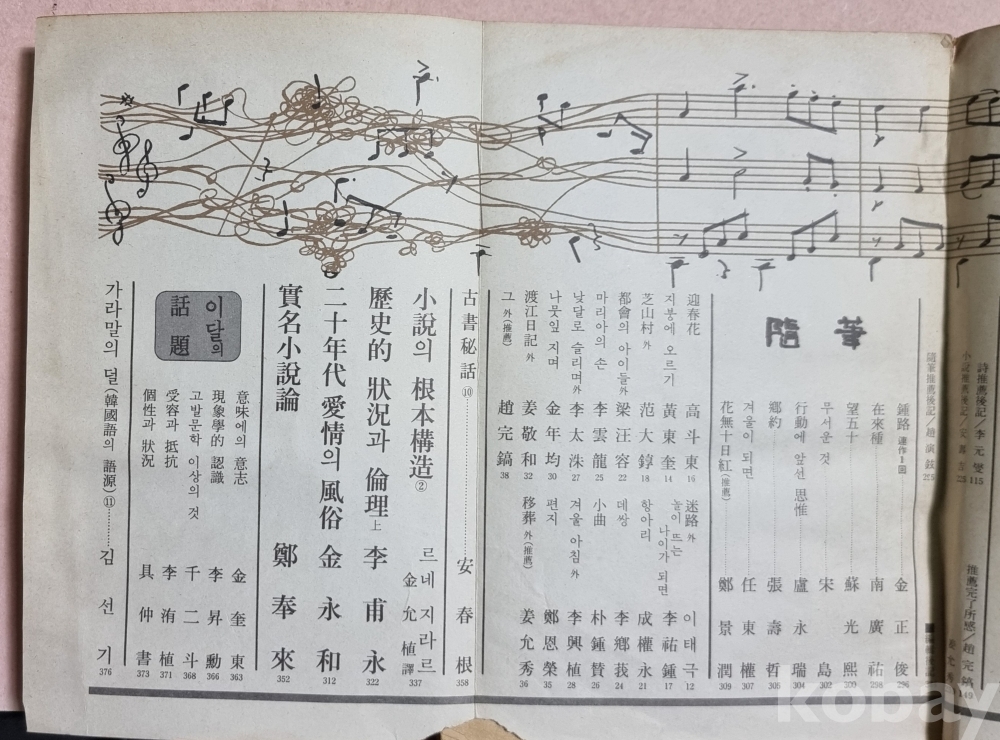 詩推薦後記/李元燮 115
隨筆
鍾路 連作1回 金正俊 296
在來種 南廣祐 298
望五十 蘇光熙 300
무서운 것 宋 島 302
行動에 앞선 思惟 盧永瑞 304
鄕約 張壽哲 305
겨울이 되면 任東權 307
花無十日紅(推薦) 鄭景潤 309
迎春花 高斗東 16
지붕에 오르기 黃東奎 14
芝山村 外 范大錞 18
都會의 아이들 外 梁汪容 22
마리아의 손 李雲龍 25
낮달로 슬리며 外 李太洙 27
나뭇잎 지며 金年均 30
渡江日記 外 姜敬和 32
그 外(推薦) 趙完鎬 38
迷路 外 이태극 12
놀이 뜨는 나이가 되면 李祐鍾 17
항아리 成權永 21
데쌍 李鄕莪 24
小曲 朴鍾賛 26
겨울 아침 外 李興植 28
편지 鄭恩榮 35
移葬 外(推薦) 姜允秀 36
古書秘話⑩ 安春根 358
小說의 根本構造② 르네 지라르 金允植譯 337
歷史的 狀況과 倫理 上 李甫永 322
二十年代 愛情의 風俗 金永和 312
實名小說論 鄭奉來 352
이달의 話題
意味에의 意志 金奎東 363
現象學的 認識 李昇勳 366
고발문학 이상의 것 千二斗 368
受容과 抵抗 李洧植 371
個性과 狀況 具仲書 373
가라말의 덜(韓國語의 語源)⑪ 김선기 376
kobay